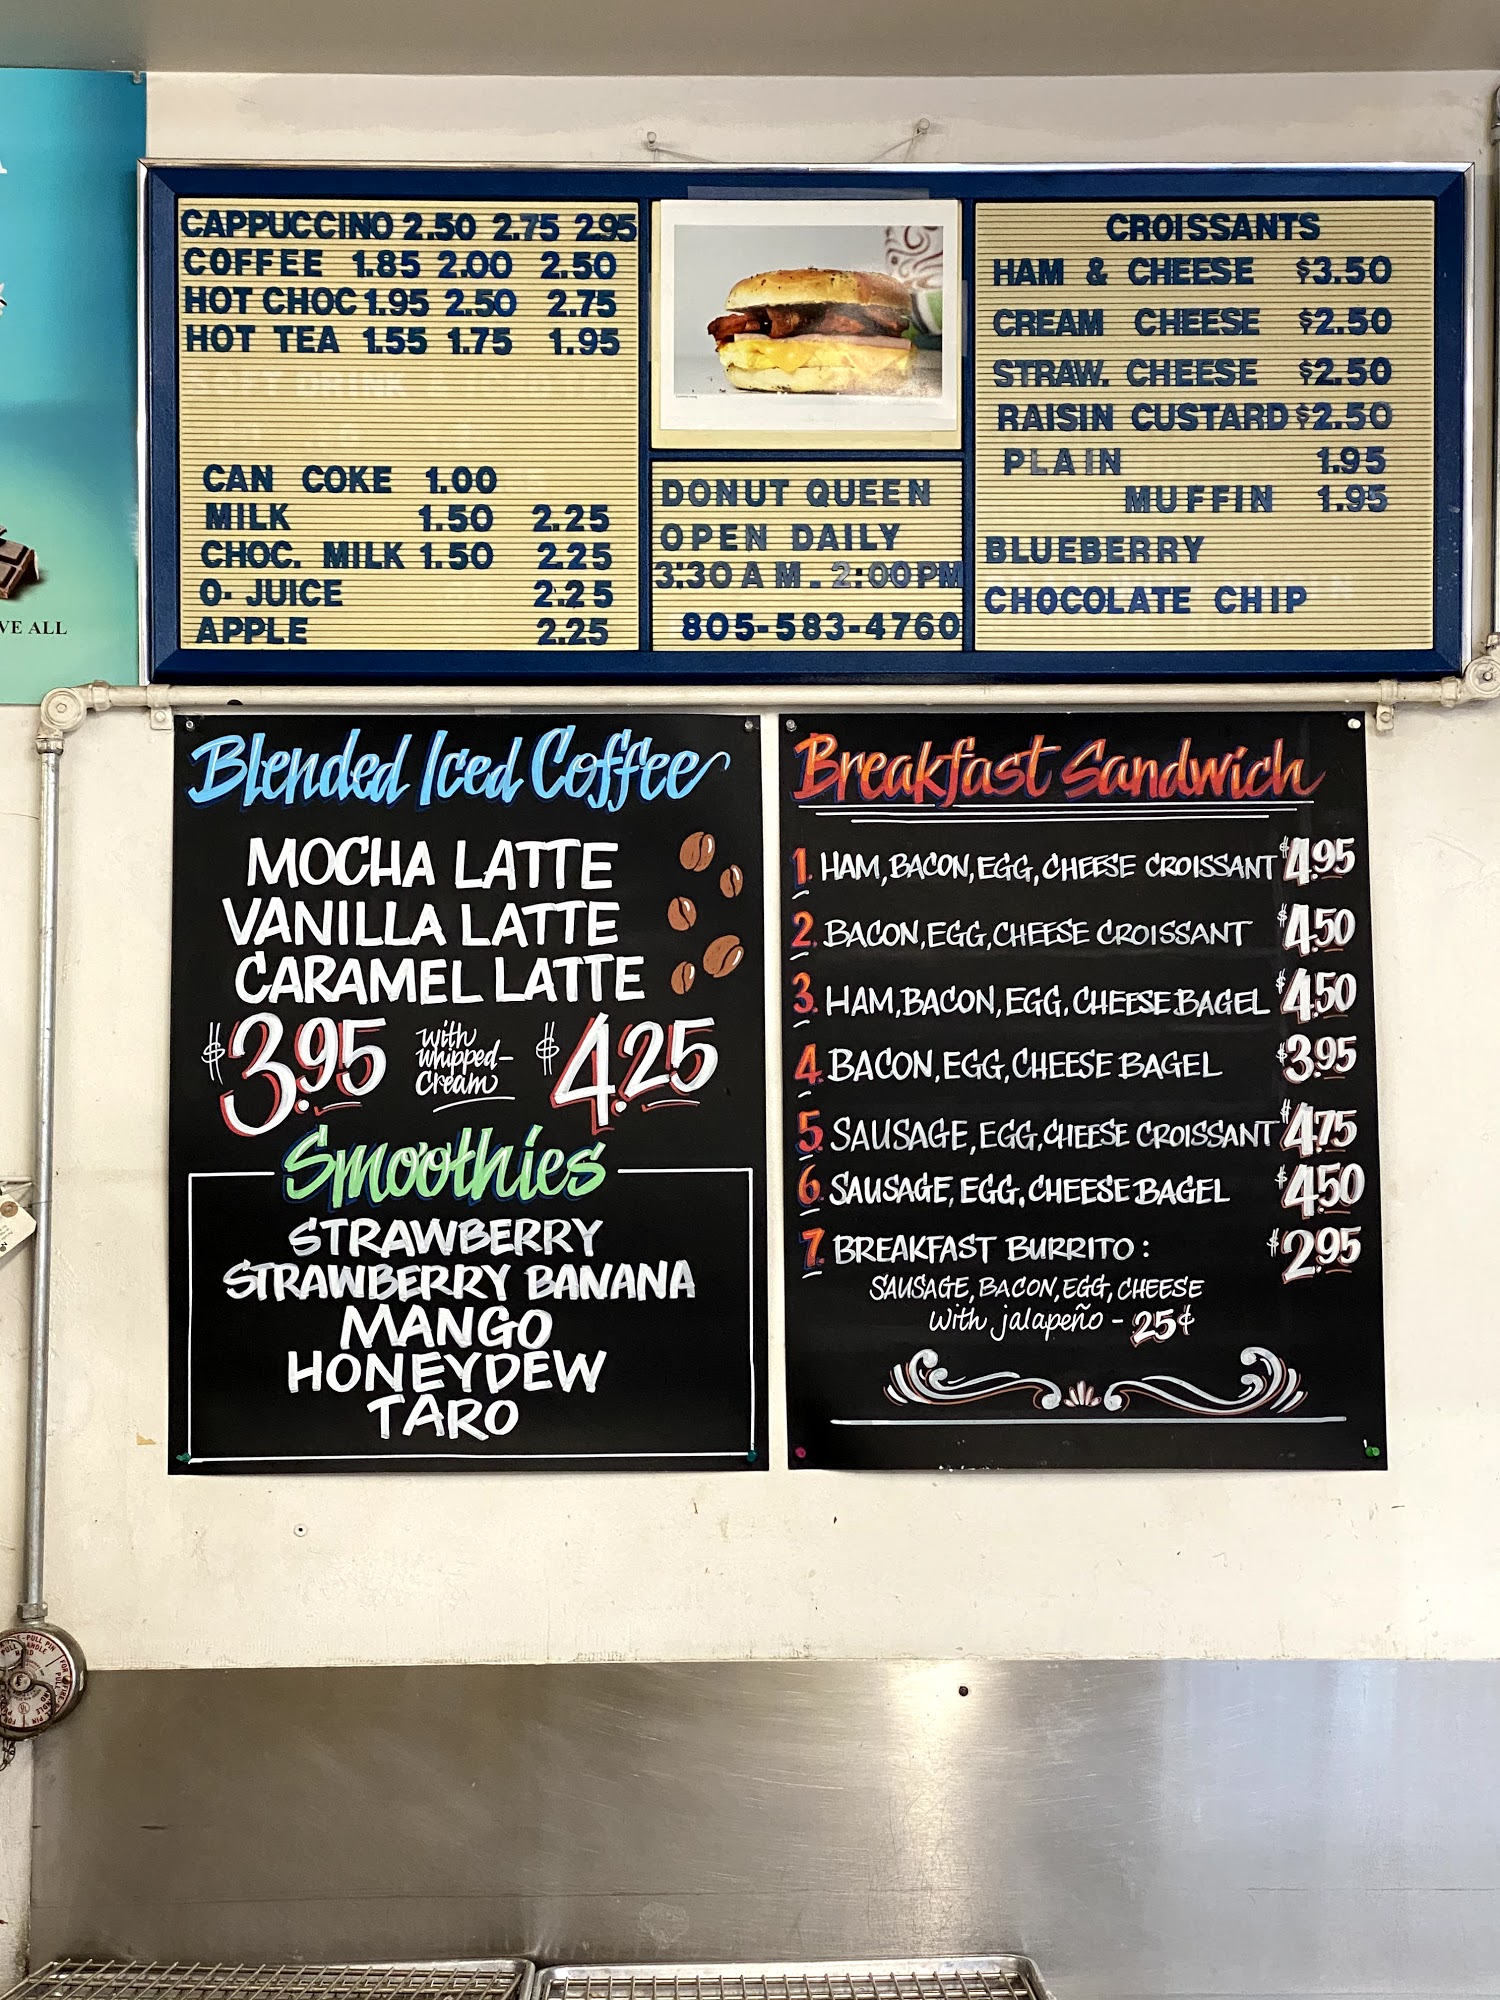 CAPPUCCINO 2.50 2.75 2.95
COFFEE 1.85 2.00 2.50
HOT CHOC 1.95 2.50 2.75
HOT TEA 1.55 1.75 1.95
CAN COKE 1.00
MILK 1.50 2.25
CHOC. MILK 1.50 2.25
O- JUICE 2.25
APPLE 2.25
DONUT QUEEN
OPEN DAILY
3:30 A M . 2:00 PM
805-583-4760
CROISSANTS
HAM & CHEESE $3.50
CREAM CHEESE $2.50
STRAW. CHEESE $2.50
RAISIN CUSTARD $2.50
PLAIN 1.95
MUFFIN 1.95
BLUEBERRY
CHOCOLATE CHIP
VE ALL
Blended Iced Coffee
MOCHA LATTE
VANILLA LATTE
CARAMEL LATTE
$3.95 with whipped-cream $4.25
Smoothies
STRAWBERRY
STRAWBERRY BANANA
MANGO
HONEYDEW
TARO
Breakfast Sandwich
1. HAM, BACON, EGG, CHEESE CROISSANT $4.95
2. BACON, EGG, CHEESE CROISSANT $4.50
3. HAM, BACON, EGG, CHEESE BAGEL $4.50
4. BACON, EGG, CHEESE BAGEL $3.95
5. SAUSAGE, EGG, CHEESE CROISSANT $4.75
6. SAUSAGE, EGG, CHEESE BAGEL $4.50
7. BREAKFAST BURRITO: $2.95
SAUSAGE, BACON, EGG, CHEESE
with jalapeño - 25¢